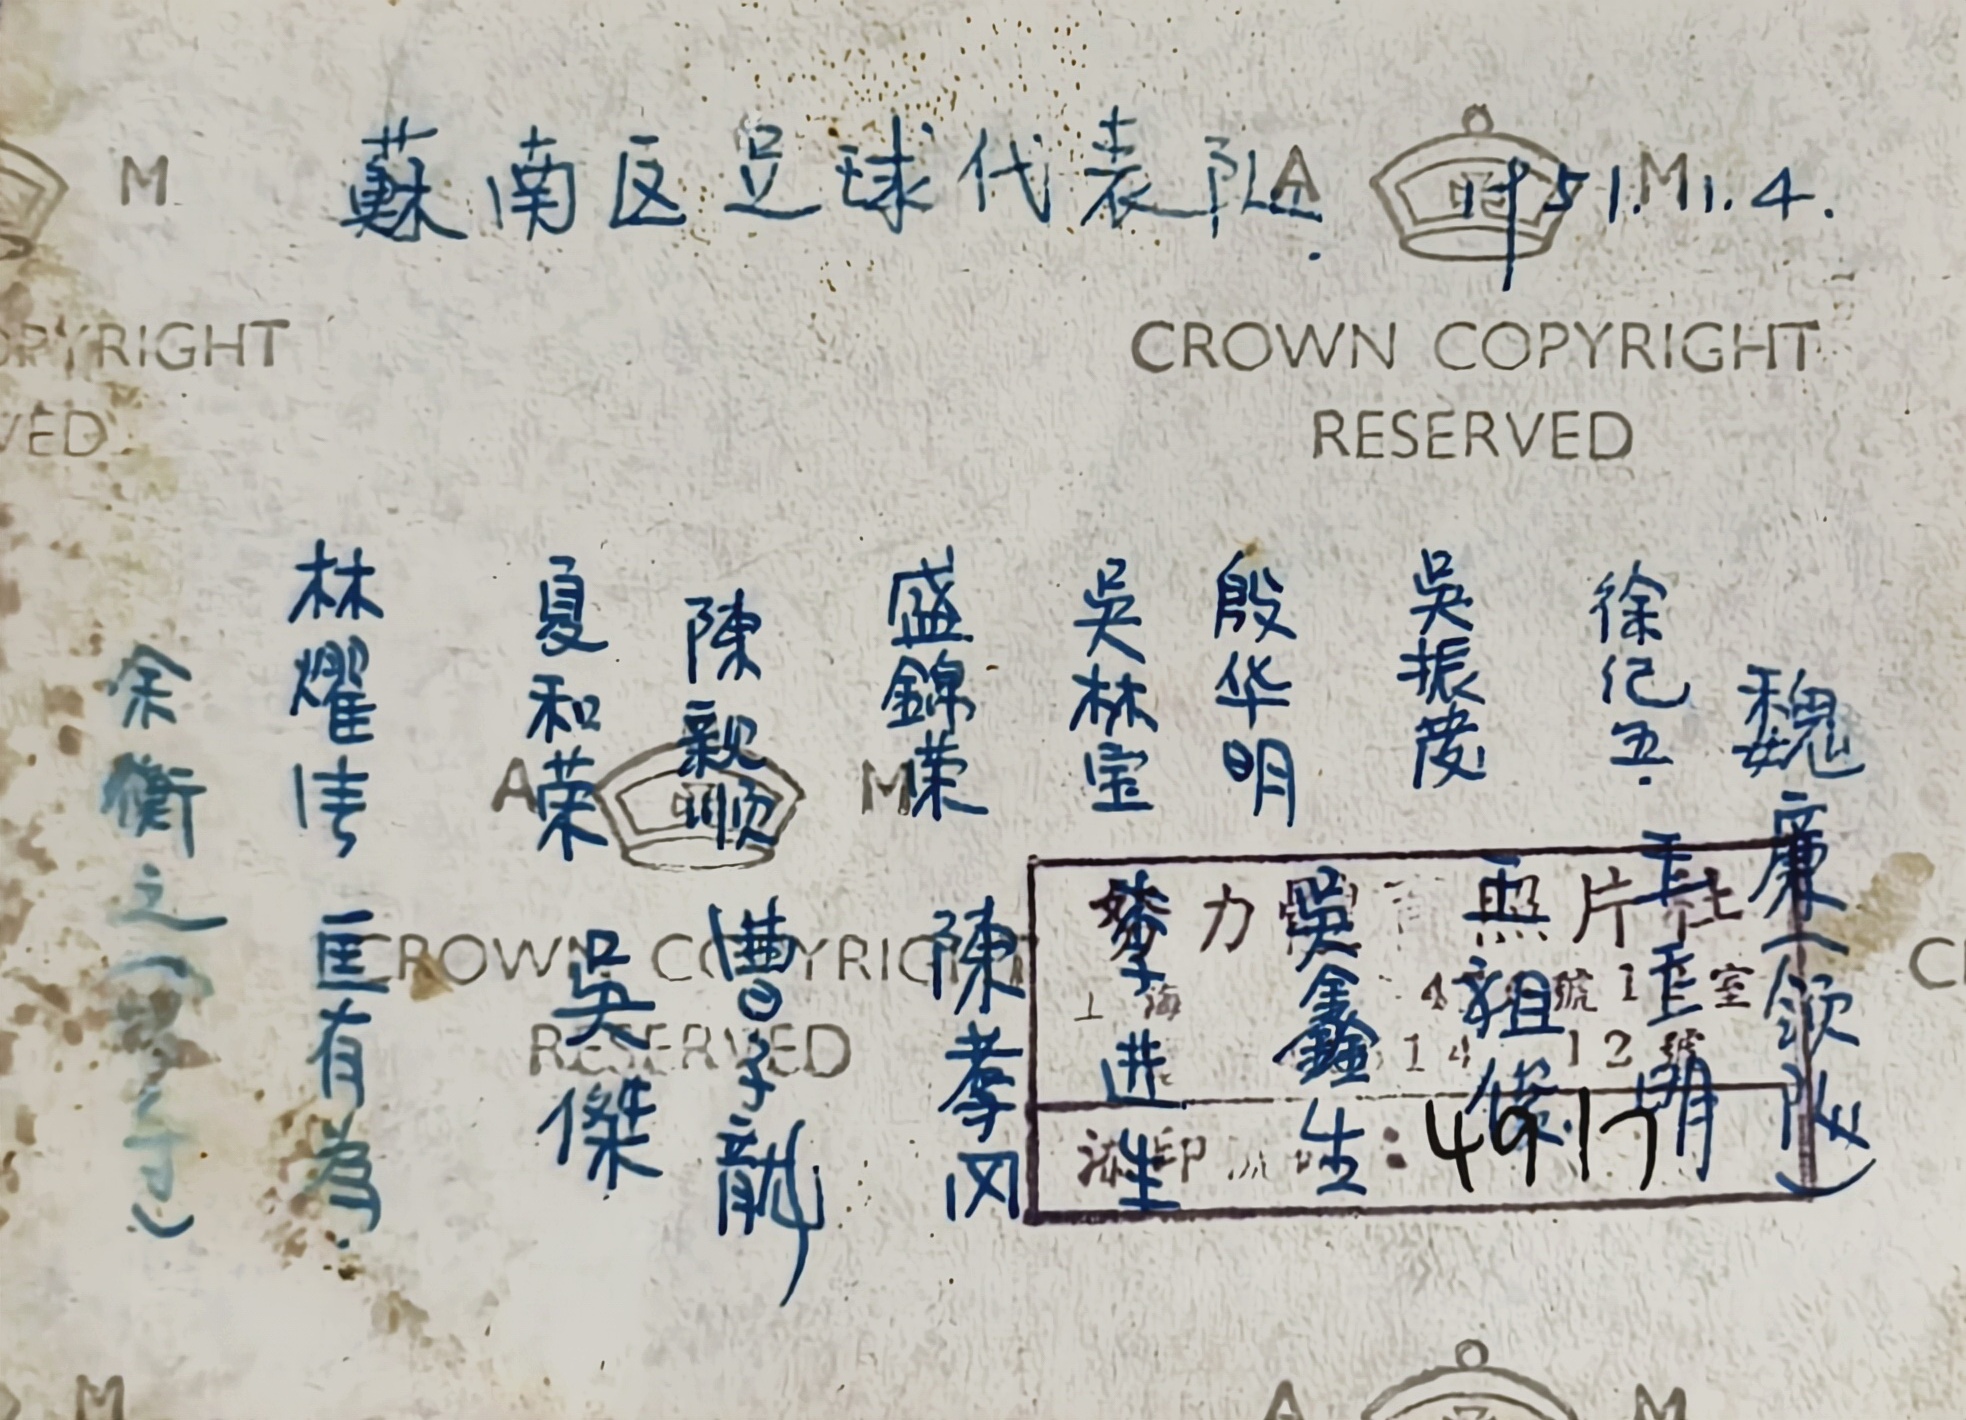 蘇南区足球代表队. 时51.11.4.
A M
M
CROWN COPYRIGHT
RESERVED
OPYRIGHT
VED
林耀清
夏和荣
陳親順
盛錦荣
吳林宝
殷华明
吳振茂
徐纪五.
魏廉(领队)
余衡之
匡有為.
吳傑
曹子龍
陳孝冈
李进生
吳鑫生
王祖儀
A M
CROWN COPYRIGHT
RESERVED
力 照片社
上海 4 號1 室
14 12號
添印 : 4917
CR
M
A M